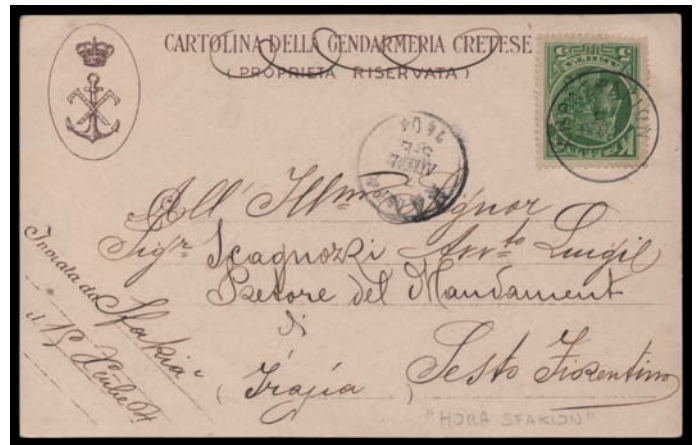 CARTOLINA DELLA GENDARMERIA CRETESE
( PROPRIETA RISERVATA )
All' Illmo Signor
Sigr Scagnozzi Avvto Luigi
Pretore del Mandament
di
( Italia ) Sesto Fiorentino
Inviata da Sfakia
il 15 Xmbre 04
"HORA SFAKION"